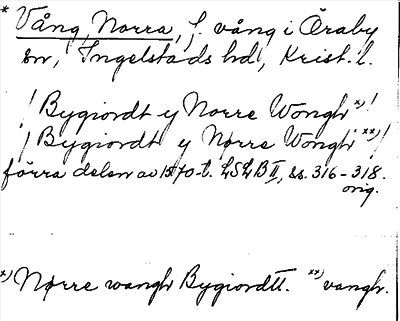 * Vång, Norra, f. vång i Öraby
sn, Ingelstads hd, Krist. l.
! Bygiordt y Norre Wongh *)!
! Bygiordt y Nørre Wongh **)!
förra delen av 1570-t. LSLB II, ss. 316-318.
orig.
*) Nørre wangh Bygiordtt. **) vangh.